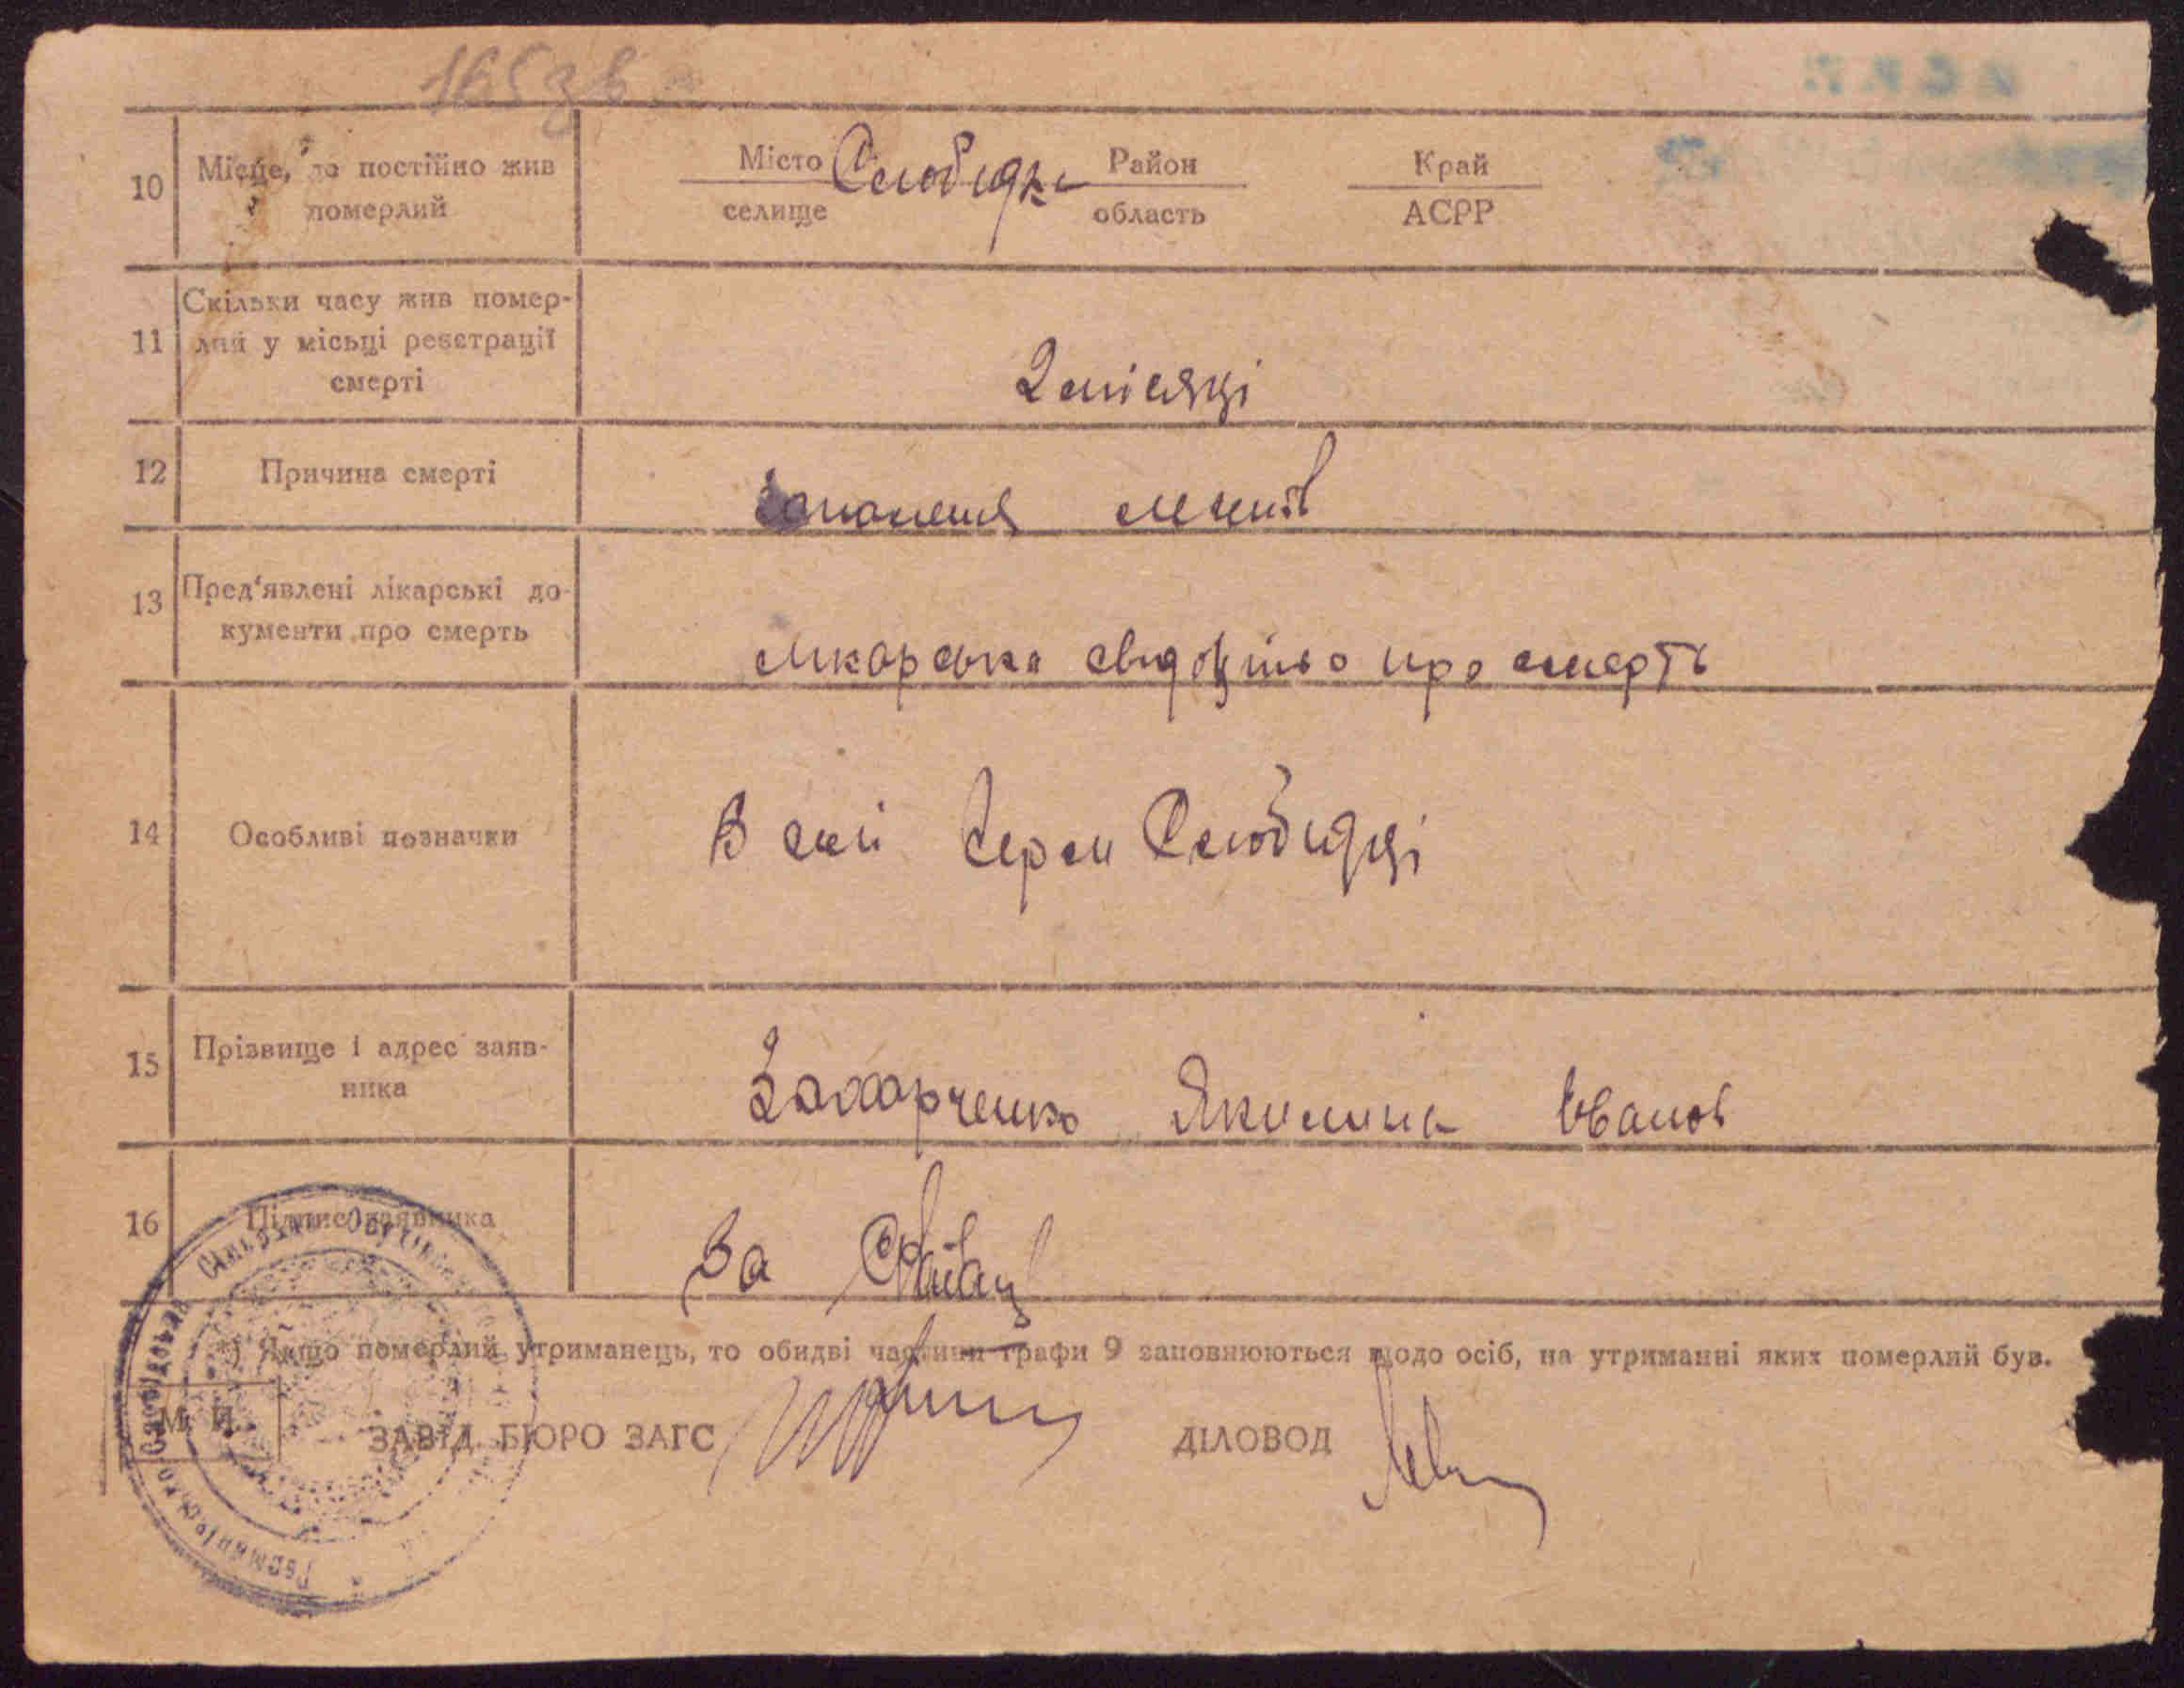 165зв
10
Місце, де постійно жив
померлий
Місто Слобідка Район Край
селище область АСРР
11
Скільки часу жив помер-
лий у місьці реєстрації
смерті
2 місяці
12
Причина смерті
запалення легенів
13
Пред'явлені лікарські до-
кументи про смерть
лікарська свидоцтво про смерть
14
Особливі позначки
В селі Герм Слобидці
15
Прізвище і адрес заяв-
ника
Захарченко Якилина Іванов
16
Підпис заявника
За
*) Якщо померлий утриманець, то обидві частини графи 9 заповнюються щодо осіб, на утриманні яких померлий був.
М. П.
ЗАВІД. БЮРО ЗАГС ДІЛОВОД